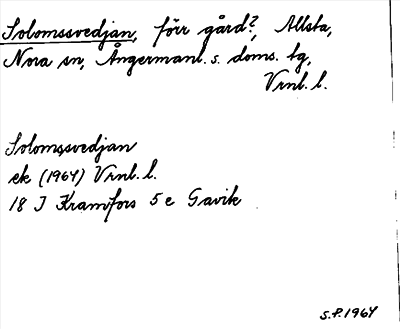 Solomssvedjan, förr gård?, Allsta,
Nora sn, Ångermanl. s. doms. tg,
Vrnl. l.
Solomssvedjan
ek (1964) Vrnl. l.
18 I Kramfors 5 e Gavik
S.P. 1964